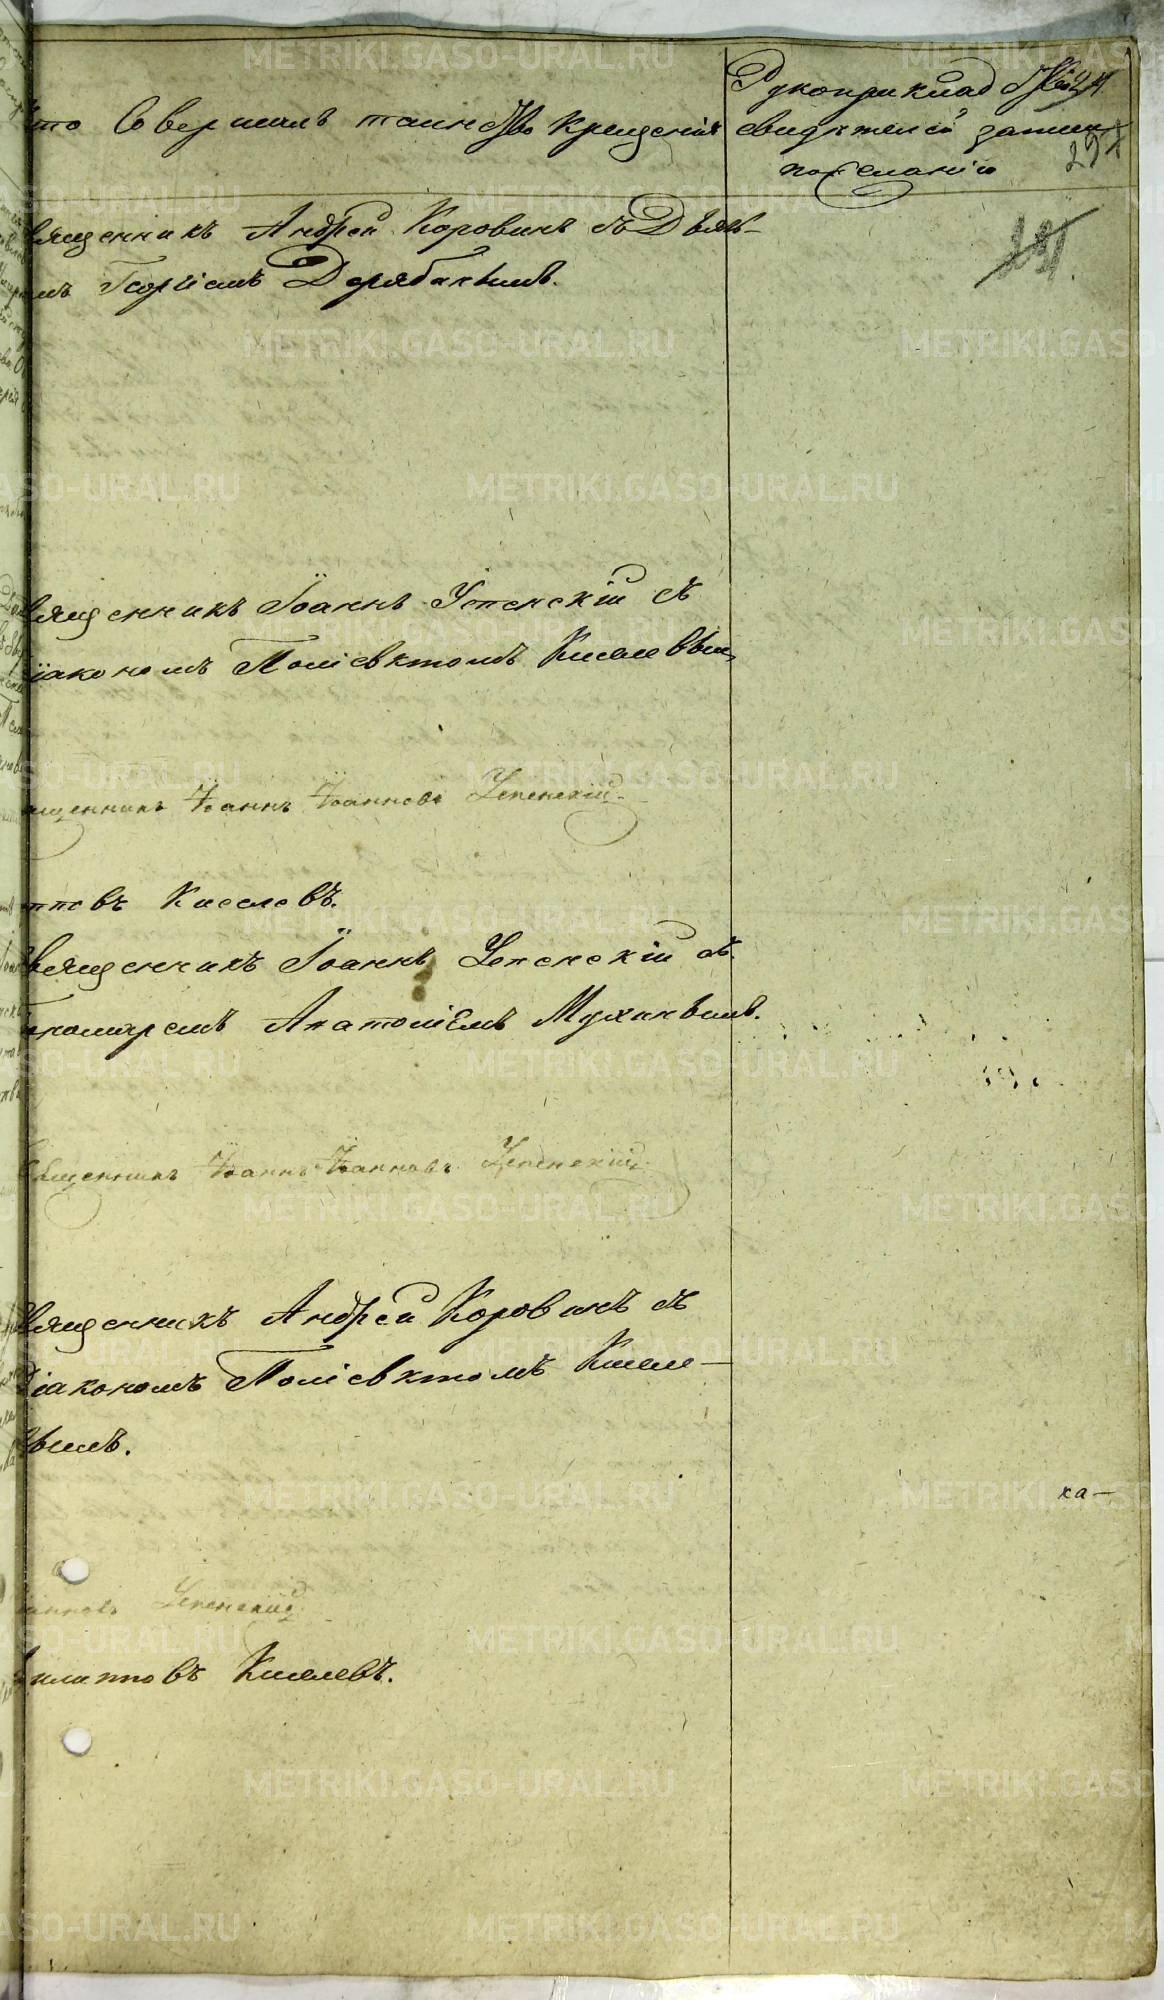 Кто Совершалъ таинство Крещенія
Рукоприкладство
свидѣтелей записи
по желанію
297
Священникъ Андрей Коровинъ съ Дьяч-
комъ Георгіемъ Дерябинымъ.
Священникъ Іоаннъ Успенскій съ
Діакономъ Поліевктомъ Киселевым
Священникъ Іоаннъ Іоанновъ Успенскій.
иповъ Киселевъ.
Священникъ Іоаннъ Успенскій съ
Пономаремъ Анатоліемъ Мухинымъ.
Священникъ Іоаннъ Іоанновъ Успенскій.
Священникъ Андрей Коровинъ съ
Діакономъ Поліевктомъ Кисиле-
вымъ.
ка-
Іоанновъ Успенскій
Филипповъ Киселевъ.
METRIKI.GASO-URAL.RU